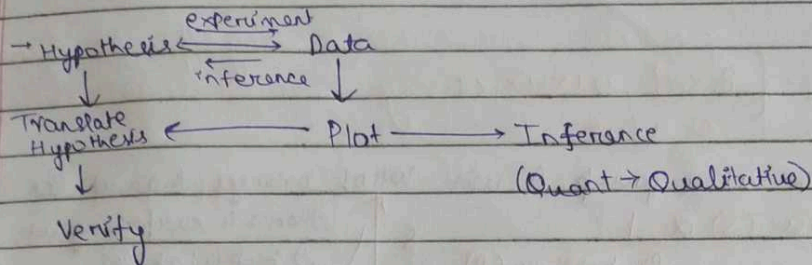 experiment
→ Hypothesis ⟷ Data
inference
↓ ↓
Translate
Hypothesis ← Plot → Inference
↓ (Quant → Qualitative)
Verify